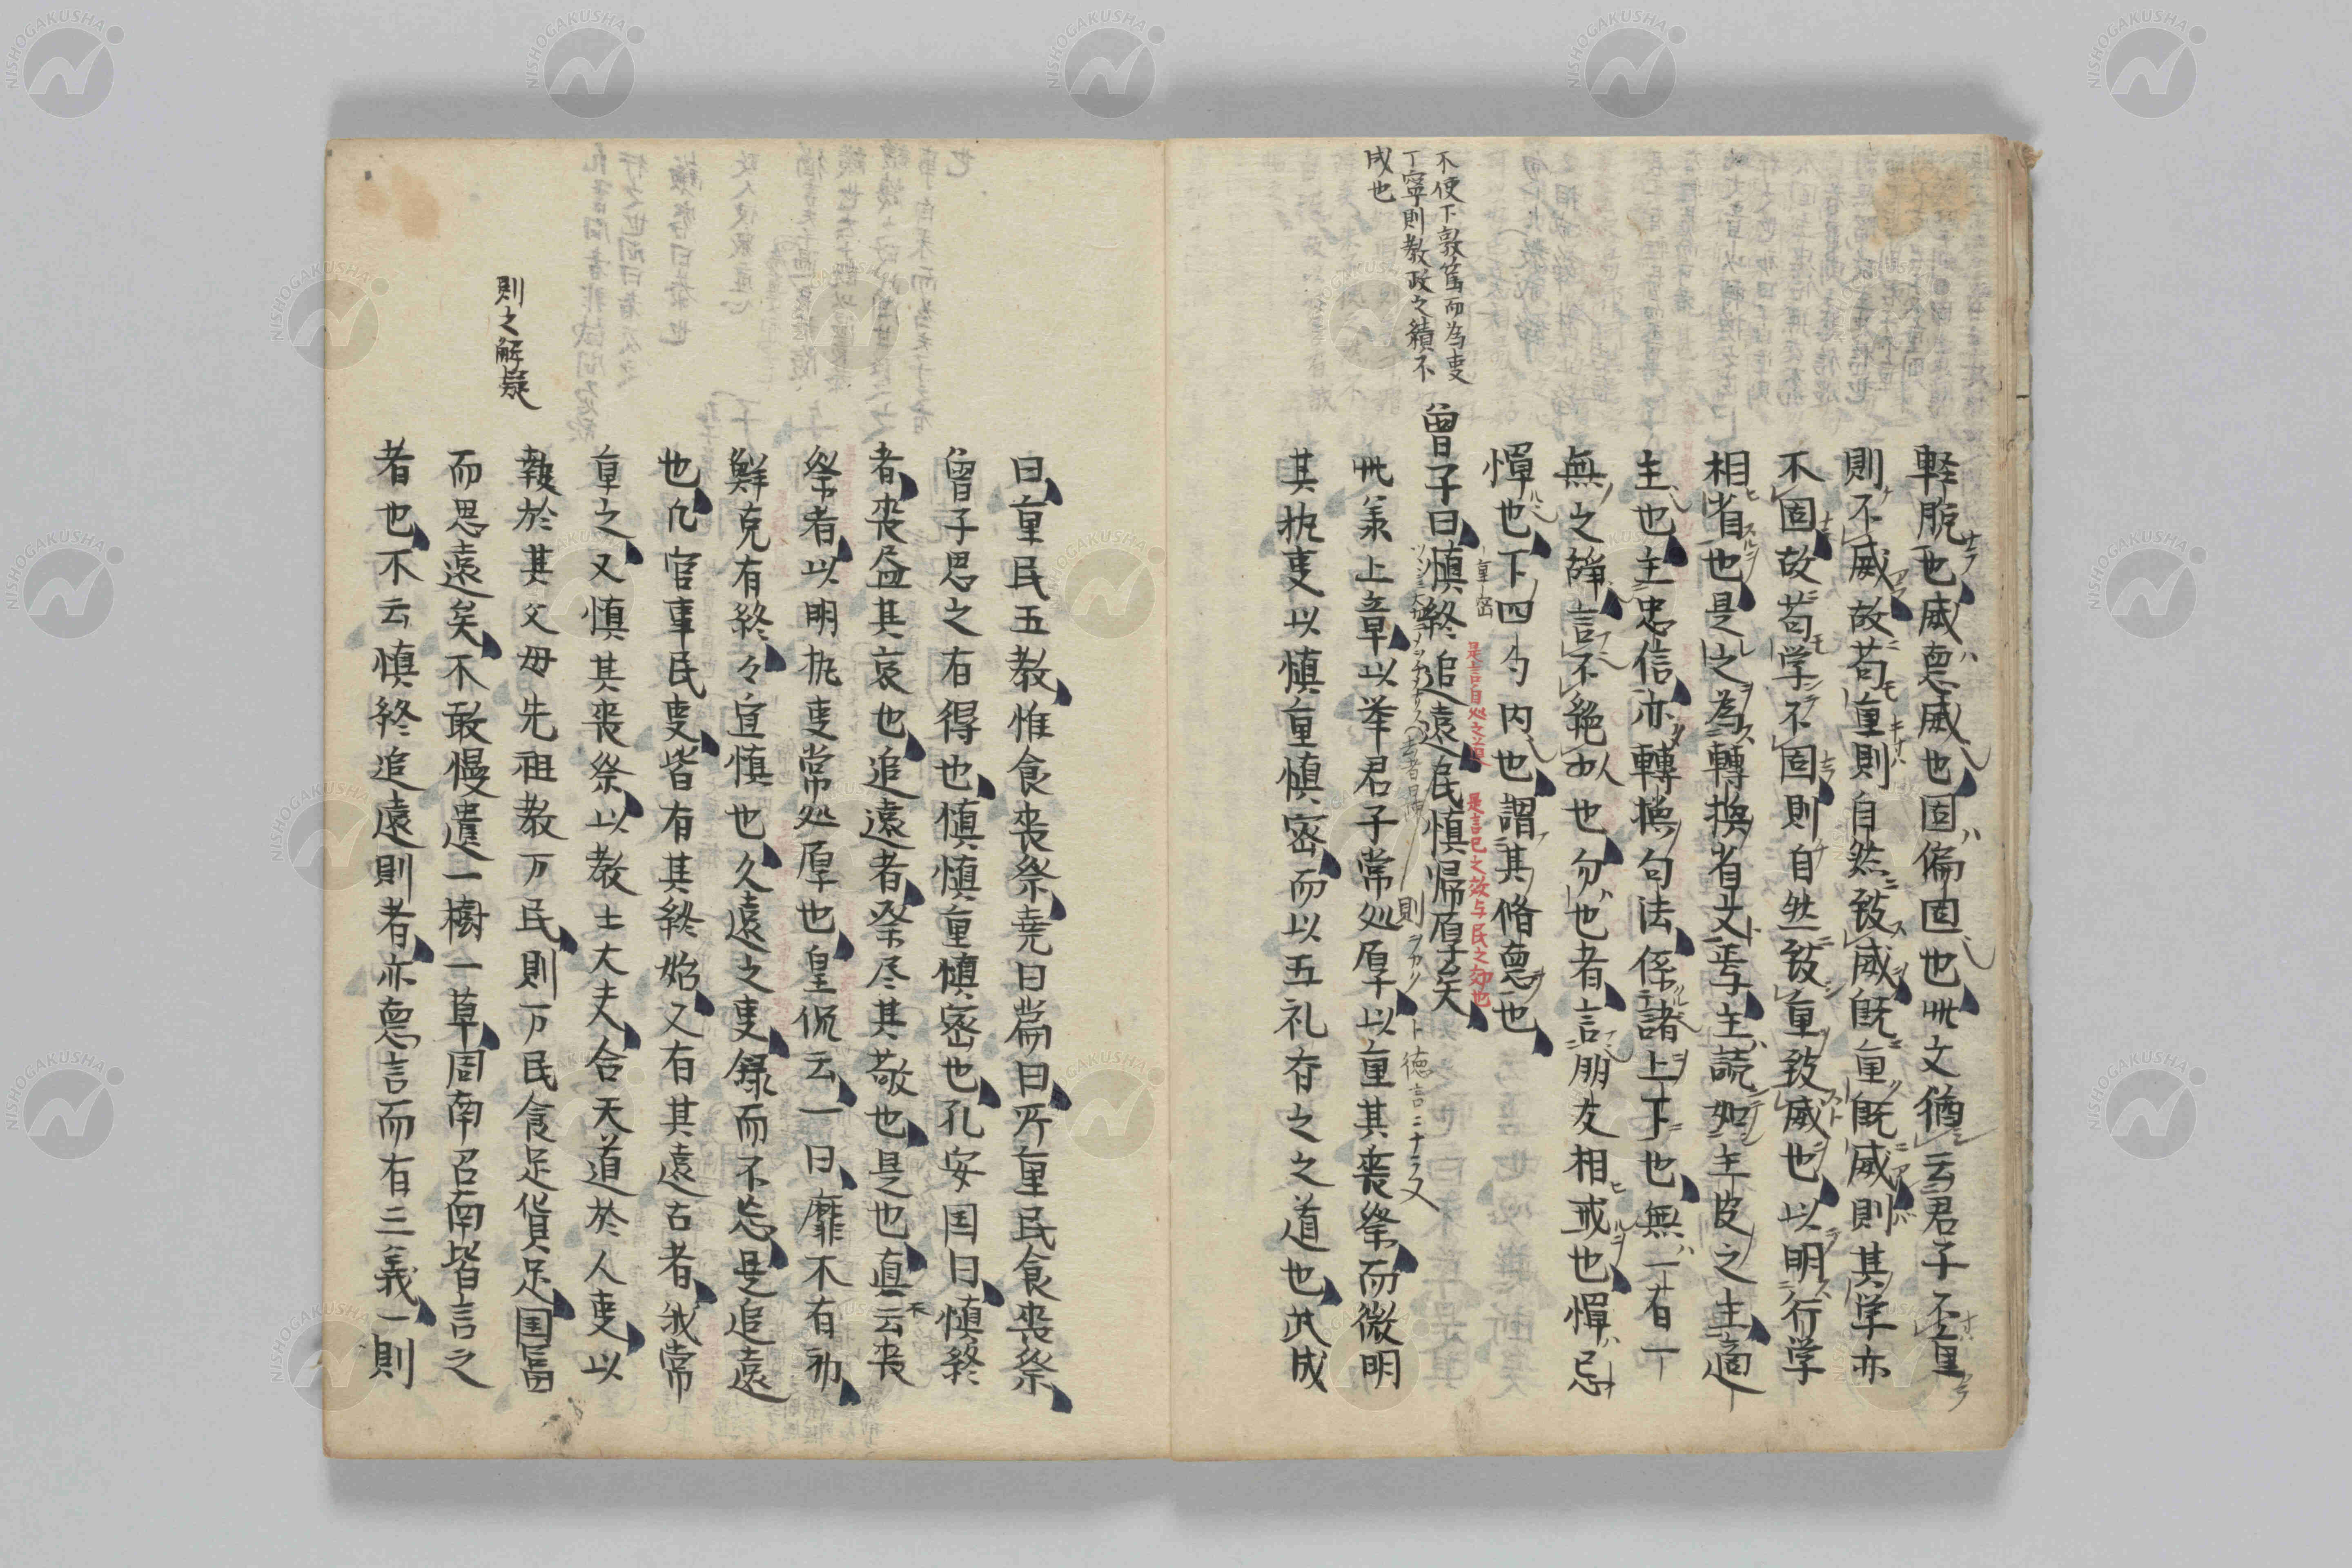 不使下敦篤而為㕝
丁寧則教政之績不
成也
軽脱也威悳威也固偏固也此文猶云君子不重
則不威故苟重則自然致威既重既威則其学亦
不固故苟学不固則自然致重致威也以明行学
相省也是之為轉換省文焉主読如主皮之主適
主也主忠信亦轉換句法係諸上下也無一有一
無之辞言不絶也勿也者言朋友相戒也憚忌
憚也下四句内也謂其脩悳也
曾子曰慎終追遠民慎帰厚矣
是言自処之道 是言己之效与民之効也
則 徳言
此承上章以举君子常処厚以重其喪祭而微明
其执㕝以慎重慎密而以五礼存之之道也武成
曰重民五教惟食喪祭堯曰篇曰所重民食喪祭
曾子思之有得也慎慎重慎密也孔安国曰慎終
者喪益其哀也追遠者祭尽其敬也是也真云喪
祭者以明执㕝常処厚也皇侃云一曰靡不有初
鮮克有終々宜慎也久遠之㕝録而不忘是追遠
也凡官事民㕝皆有其終始又有其遠古者我常
重之又慎其喪祭以教士大夫合天道於人㕝以
報於其父母先祖教万民則万民食足貨足国富
而思遠矣不敢慢遺一樹一草周南召南皆言之
者也不云慎終追遠則者亦悳言而有三義一則
則之解疑